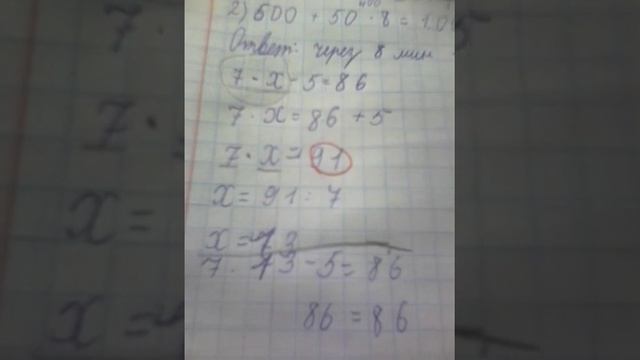 2) 600 + 50 · 8 =
Ответ: через 8 мин
7 · x - 5 = 86
7 · x = 86 + 5
7 · x = 91
x = 91 : 7
x = 13
7 · 13 - 5 = 86
86 = 86